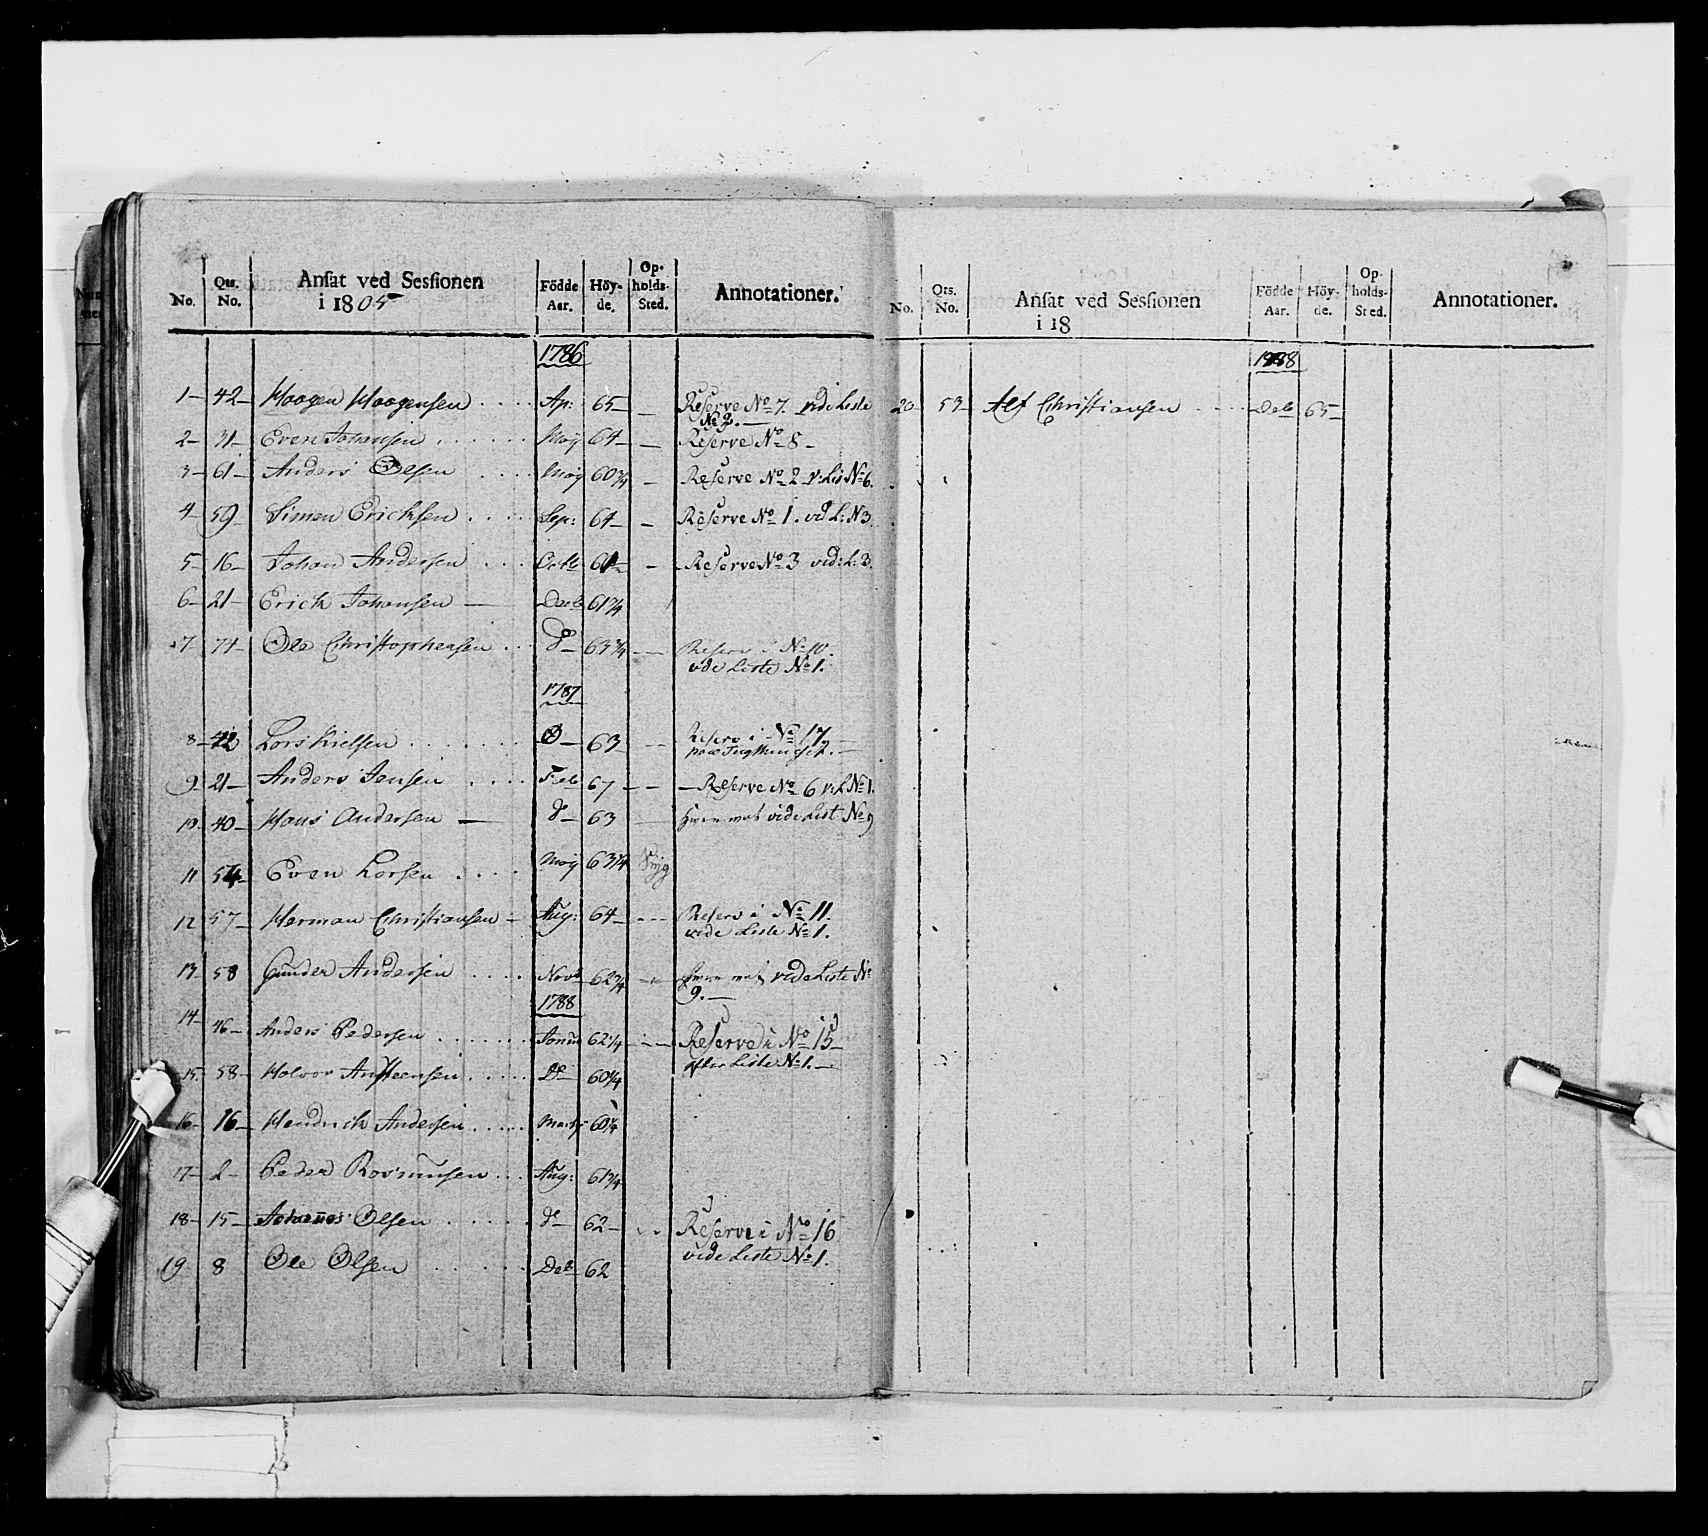 No. Qts. No. Ansat ved Sessionen i 1805 Födde Aar. Höy-de. Op-holds-Sted. Annotationer.
1786
1 42 Haagen Haagensen Ap: 65 Reserve No 7. vide Liste
No 2.
2 31 Even Johansen May 64 Reserve No 8
3 61 Anders Olsen May 60 3/4 Reserve No 2 v: Lis No 6.
4 59 Simen Ericksen Sep: 64 Reserve No 1. vid L: N 3.
5 16 Johan Andersen Octb 61 Reserve No 3 vid: L: 3.
6 21 Erich Johansen Decb 61 3/4
7 74 Ole Christophersen d 63 3/4 Reserv i No 10.
vide Liste No 1.
1787
8 42 Lars Kielsen 63 Reserv i No 17
9 21 Anders Jensen Feb: 67 Reserve No 6 v: L No 1.
10 40 Hans Andersen d 63 vide List No 9
11 54 Even Larsen May 63 1/4
12 57 Herman Christiansen Aug: 64 Reserv i No 11.
vide Liste No 1.
13 58 Gunder Andersen Novb 62 3/4 vide Liste No
9.
1788
14 46 Anders Pedersen 62 1/4 Reserve i No 15
efter Liste No 1.
15 58 Halvor Anstensen D 60 1/4
16 16 Hendrich Andersen Marty 60 1/4
17 2 Peder Aug: 61 3/4
18 15 Johannes Olsen d 62 Reserve i No 16
vide Liste No 1.
19 8 Ole Olsen Deb 62
No. Qts. No. Ansat ved Sessionen i 18 Födde Aar. Höy-de. Op-holds-Sted. Annotationer.
1788
20 53 Alf Christiansen Deb 65